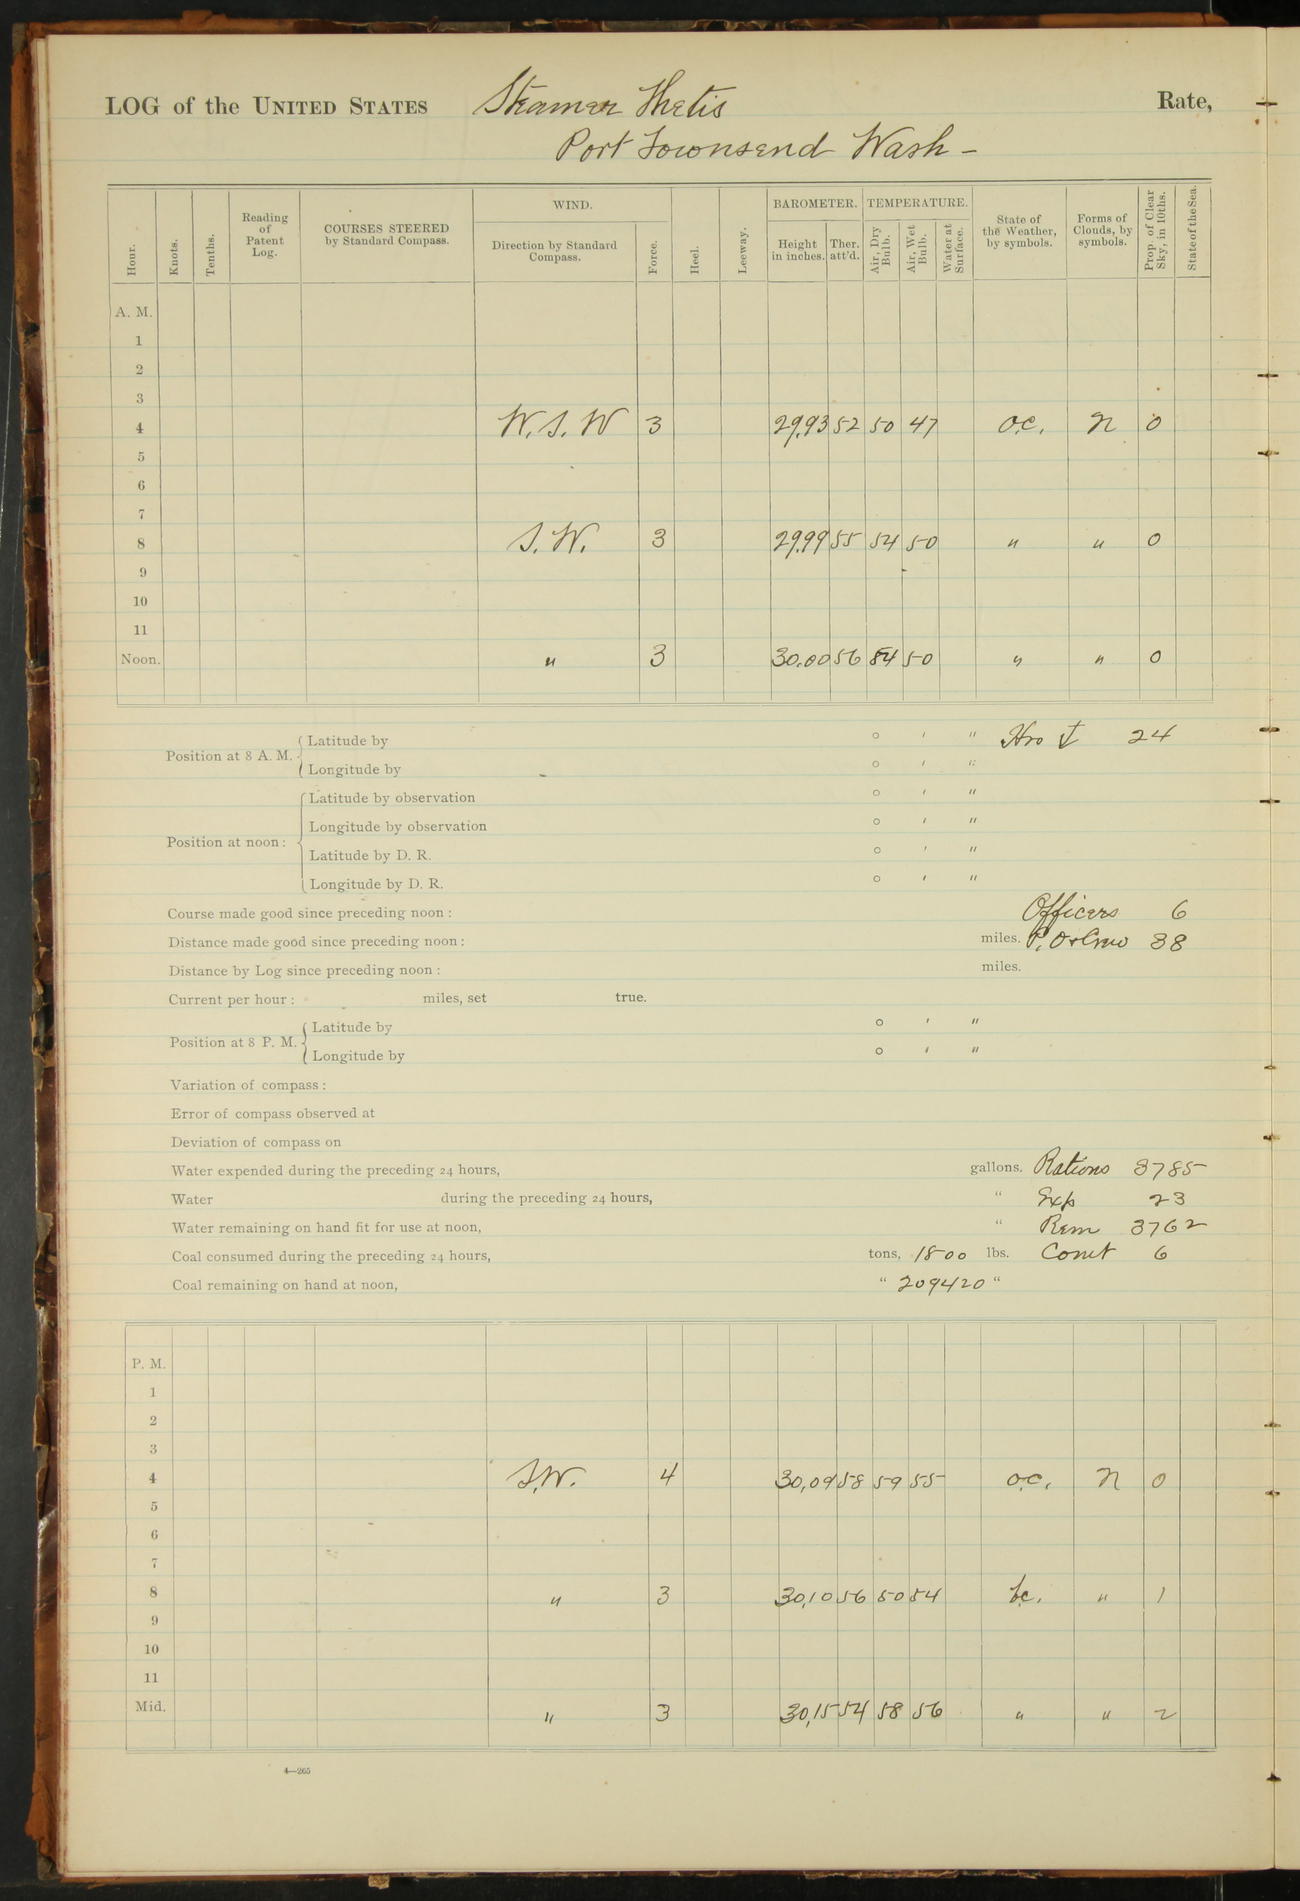 LOG of the UNITED STATES Steamer Thetis Rate,
Port Townsend Wash -
Hour. Knots. Tenths. Reading of Patent Log. COURSES STEERED by Standard Compass. WIND. Direction by Standard Compass. Force. Heel. Leeway. BAROMETER. Height in inches. Ther. att'd. TEMPERATURE. Air, Dry Bulb. Air, Wet Bulb. Water at Surface. State of the Weather, by symbols. Forms of Clouds, by symbols. Prop. of Clear Sky, in 10ths. State of the Sea.
A. M.
1
2
3
4 W. S. W 3 29.93 52 50 47 o.c. N 0
5
6
7
8 S. W. 3 29.99 55 54 50 " " 0
9
10
11
Noon. " 3 30.00 56 54 50 " " 0
Position at 8 A. M. Latitude by ° ' " 24
Longitude by ° ' "
Position at noon: Latitude by observation ° ' "
Longitude by observation ° ' "
Latitude by D. R. ° ' "
Longitude by D. R. ° ' "
Course made good since preceding noon: Officers 6
Distance made good since preceding noon: miles. P. O & Crew 38
Distance by Log since preceding noon: miles.
Current per hour: miles, set true.
Position at 8 P. M. Latitude by ° ' "
Longitude by ° ' "
Variation of compass:
Error of compass observed at
Deviation of compass on
Water expended during the preceding 24 hours, gallons. Rations 3785
Water during the preceding 24 hours, " Exp 23
Water remaining on hand fit for use at noon, " Rem 3762
Coal consumed during the preceding 24 hours, tons, 1800 lbs. Comt 6
Coal remaining on hand at noon, " 209420 "
P. M.
1
2
3
4 S.W. 4 30,09 58 59 55 o.c. N 0
5
6
7
8 " 3 30,10 56 50 54 b.c. " 1
9
10
11
Mid. " 3 30,15 54 58 56 " " 2
4—265